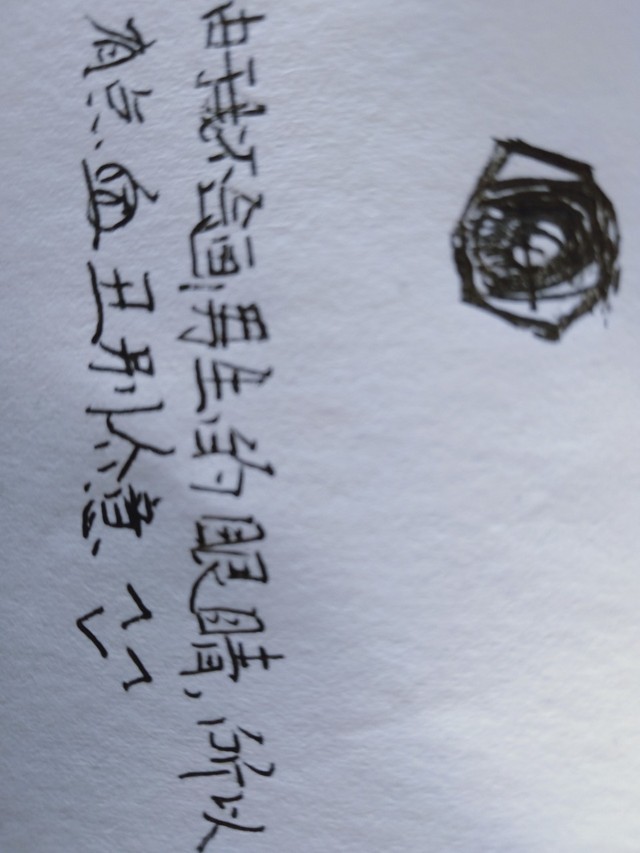 由于我不会画男生的眼睛,所以
有点画丑别介意